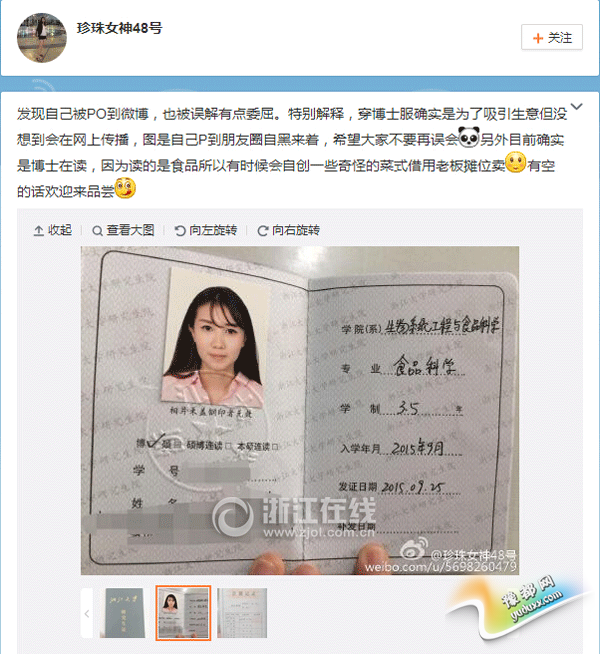 珍珠女神48号
+ 关注
发现自己被PO到微博，也被误解有点委屈。特别解释，穿博士服确实是为了吸引生意但没
想到会在网上传播，图是自己P到朋友圈自黑来着，希望大家不要再误会 另外目前确实
是博士在读，因为读的是食品所以有时候会自创一些奇怪的菜式借用老板摊位卖 有空
的话欢迎来品尝
收起 查看大图 向左旋转 向右旋转
相片未盖钢印者无效
博 硕 硕博连读 本硕连读
学 号
姓 名
学院(系) 生物系统工程与食品科学
专 业 食品科学
学 制 3.5 年
入学年月 2015年9月
发证日期 2015.09.25
补发日期
浙江在线
www.zjol.com.cn
@珍珠女神48号
weibo.com/u/5698260479
浙江大学
豫都网
yuduxx.com